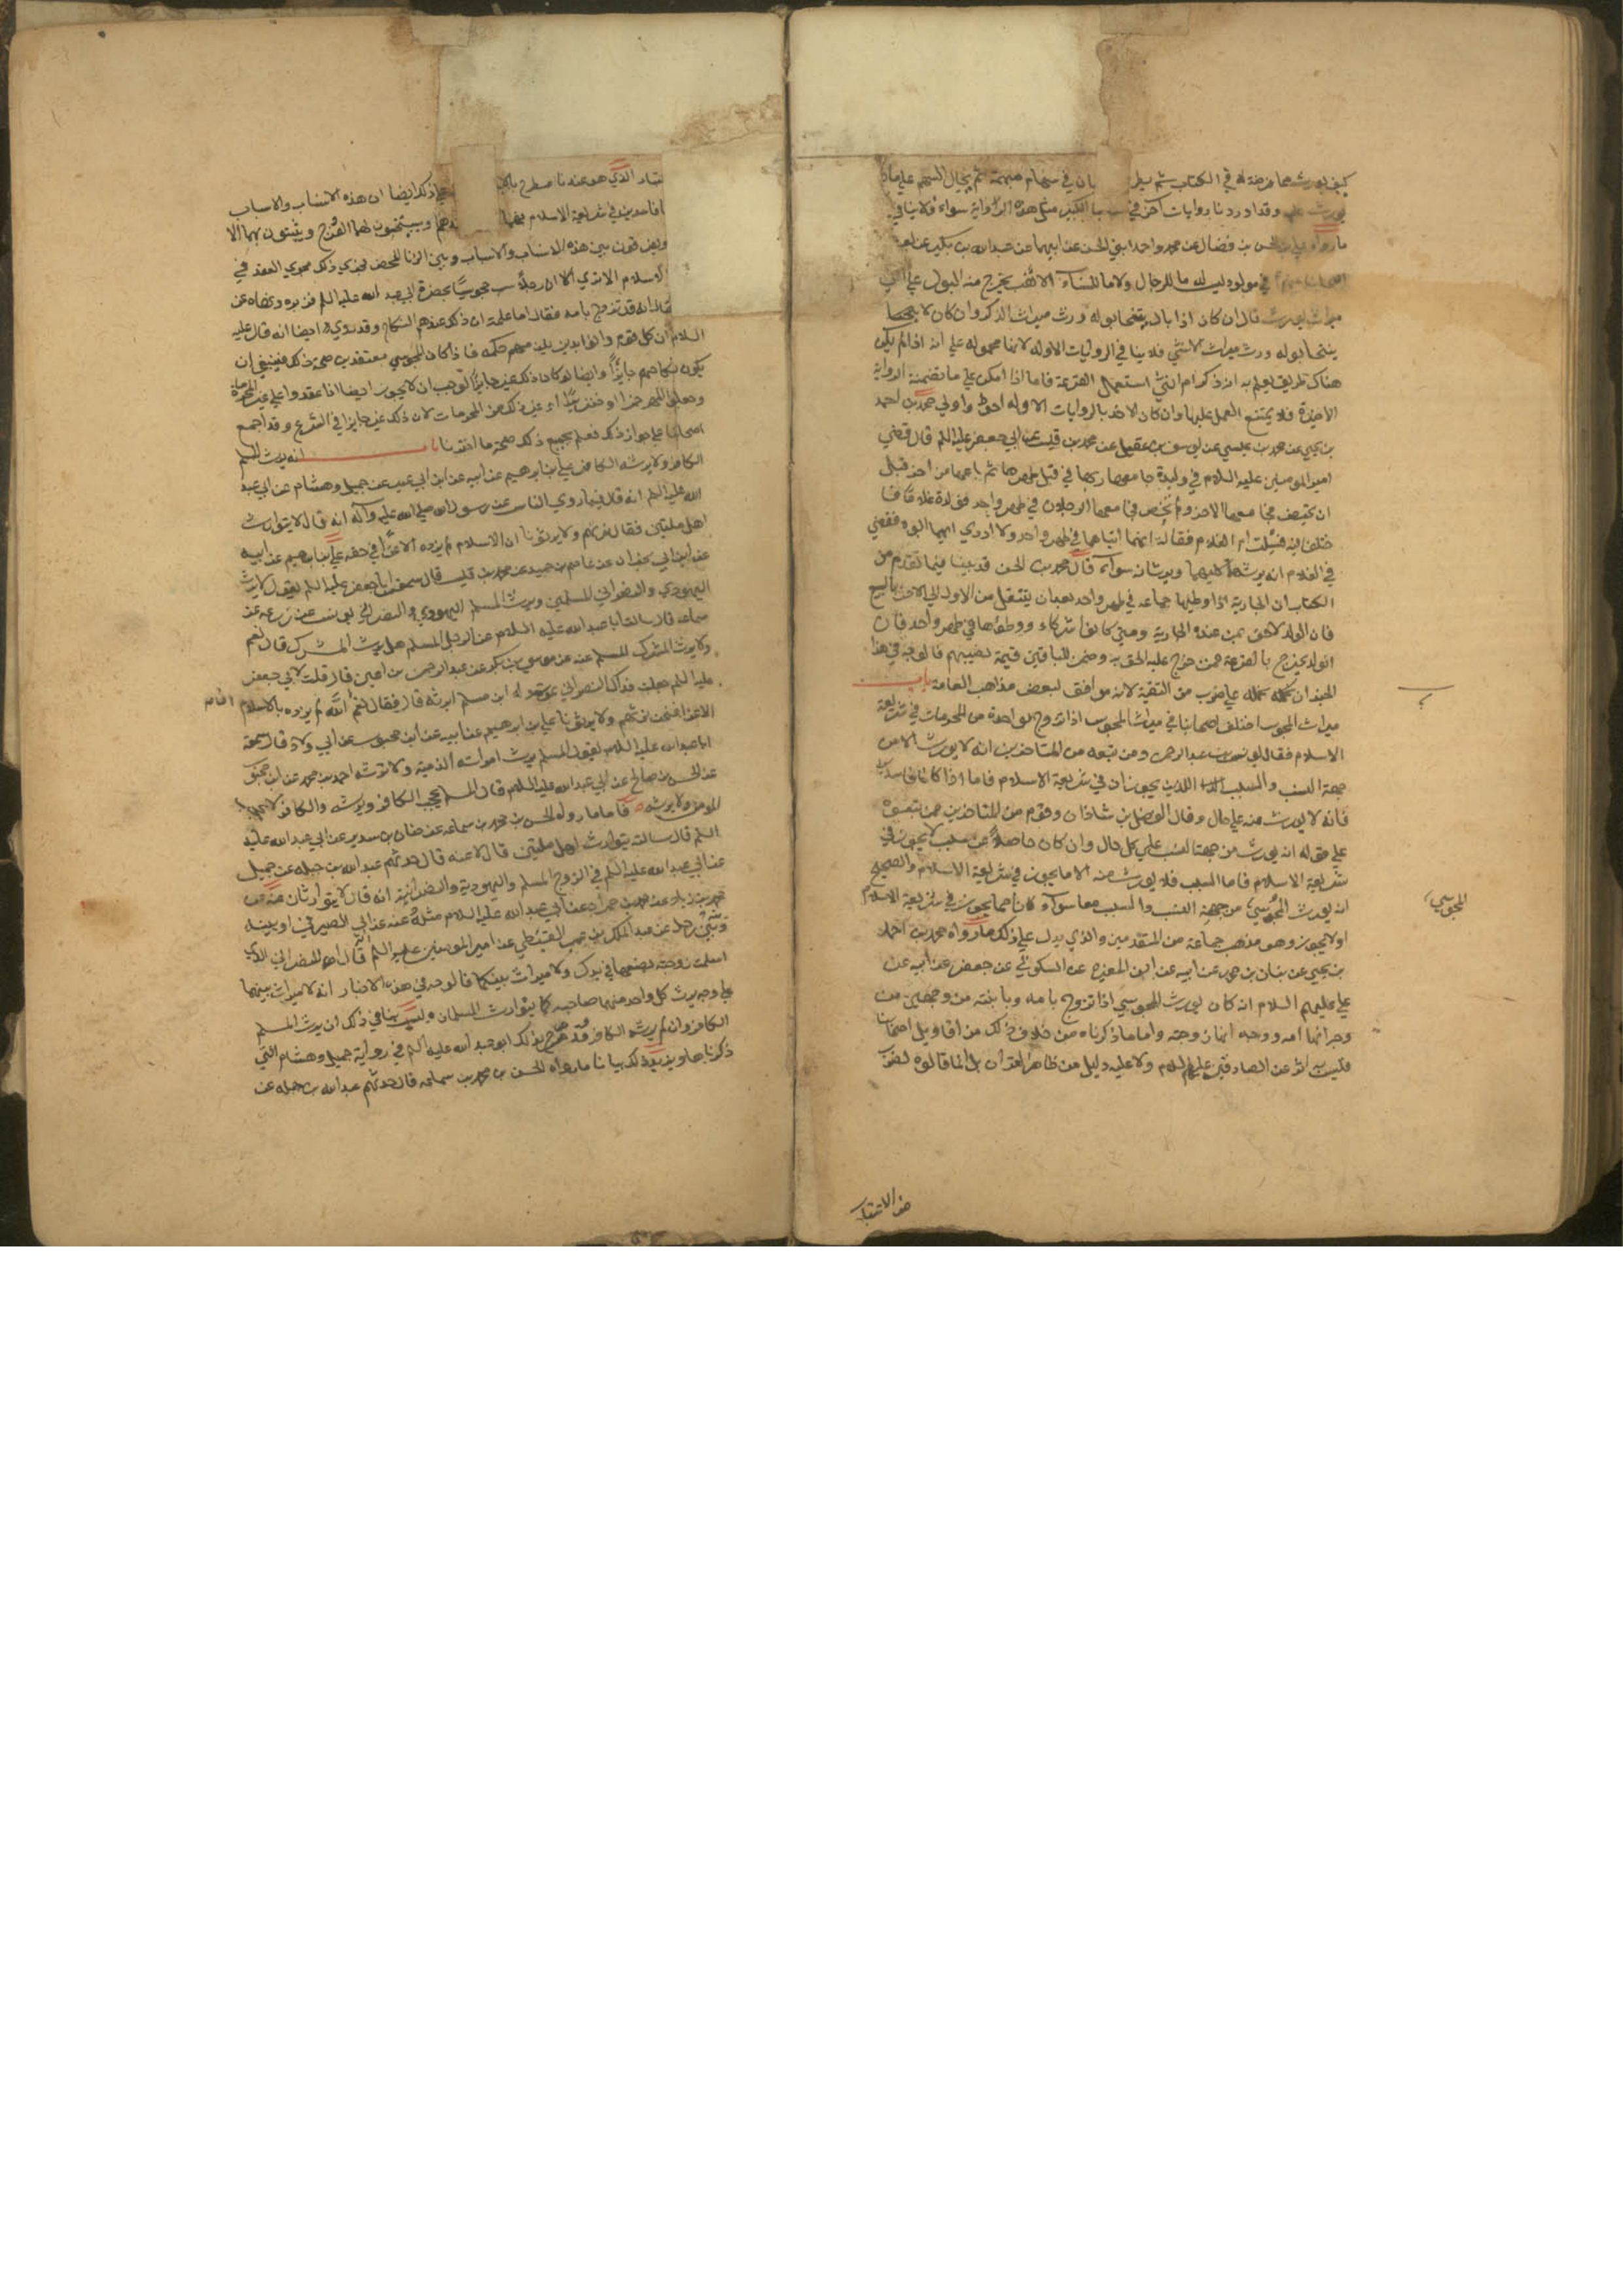 كيف يورث هما فرضه له في الكتاب ثم في سهام مبهمة ثم يجال السهم على ما
يورث عليه وقد اوردنا روايات اخر في كتابنا الكبير مثل هذه الرواية سواء فلا ينافي
ما رواه علي بن الحسن بن فضال عن محمد واحمد ابني الحسن عن ابيهما عن عبد الله بن بكير عن بعض
اصحابنا عنهم في مولود ليس له ما للرجال ولا ما للنساء الا ثقب يخرج منه البول على اي
ميراث يورث قال ان كان اذا بال يتنحى بوله ورث ميراث الذكر وان كان لا يتنحى
يتنحى بوله ورث ميراث الانثى فلا ينافي الروايات الاوله لانها محموله على انه اذا لم يكن
هناك طريق يعلم به انه ذكر ام انثى استعمل القرعة فاما اذا امكن على ما تضمنته الرواية
الاخيرة فلا يمتنع العمل عليها وان كان الاخذ بالروايات الاوله احوط واولى محمد بن احمد
بن يحيى عن محمد بن عيسى عن يوسف بن عقيل عن محمد بن قيس عن ابي جعفر عليه السلم قال قضى
امير المومنين عليه السلام في وليدة جامعها ربها في قبل طهرها ثم باعها من اخر قبل
ان تحيض فجامعها الاخر ولم تحض فجامعها الرجلان في طهر واحد فولدت غلاما فاختلفا
فيه فسئلت ام الغلام فقالت انهما اتياها في طهر واحد ولا ادري ايهما ابوه فقضى
في الغلام انه يرثهما كليهما ويرثانه سواء قال محمد بن الحسن قد بينا فيما تقدم من
الكتاب ان الجارية اذا وطيها جماعه في طهر واحد بعد ان ينتقل من الاول الى الاخر بالبيع
فان الولد لاحق بمن عنده الجارية ومتى كانوا شركاء ووطؤها في طهر واحد فان
الولد يخرج بالقرعة فمن خرج عليه الحق به وضمن للباقين قيمة نصيبهم فالوجه في هذا
الخبر ان نحمله على ضرب من التقية لانه موافق لبعض مذاهب العامة باب
ميراث المجوس اختلف اصحابنا في ميراث المجوس اذا تزوج بواحدة من المحرمات في شريعة
الاسلام فقال يونس بن عبد الرحمن ومن تبعه من المتاخرين انه لا يورث الا من
جهة النسب والسبب اللذين يجوزان في شريعة الاسلام فاما اذا كانا فاسدين
فانه لا يورث منه على حال وقال الفضل بن شاذان وقوم من المتاخرين ممن تبعوه
على قوله انه يورث من جهة النسب على كل حال وان كان حاصلا عن سبب لا يجوز في
شريعة الاسلام فاما السبب فلا يورث منه الا ما يجوز في شريعة الاسلام والصحيح
انه يورث المجوسي من جهة النسب والسبب معا سواء كان مما يجوز في شريعة الاسلام
المجوسي
او لا يجوز وهو مذهب جماعة من المتقدمين والذي يدل على ذلك ما رواه محمد بن احمد
بن يحيى عن بنان بن محمد عن ابيه عن ابن المغيرة عن السكوني عن جعفر عن ابيه عن
علي عليهم السلام انه كان يورث المجوسي اذا تزوج بامه وبابنته من وجهين من
وجه انها امه ووجه انها زوجته واما ما ذكرناه من خلاف ذلك من اقاويل اصحابنا
فليس به اثر عن الصادقين عليهم السلام ولا عليه دليل من ظاهر القران بل انما قالوه لضرب
هذا الاعتبار
الذي هو عندنا مطرح على ذلك ايضا ان هذه الانساب والاسباب
فاسدين في شريعة الاسلام ويستحبون بها الفرج ويثبتون بها الا
ويفرقون بين هذه الانساب والاسباب وبين الزنا المحض فجرى ذلك مجرى العقد في
الاسلام الا ترى الى ان رجلا سب مجوسيا بحضرة ابي عبد الله عليه السلم فزبره ونهاه عن
فقال انه قد تزوج بامه فقال اما علمت ان ذلك عندهم النكاح وقد روي ايضا انه قال عليه
السلام ان كل قوم دانوا بدين يلزمهم حكمه فاذا كان المجوسي معتقدين صحة ذلك فينبغي ان
يكون نكاحهم جايزا وايضا لو كان ذلك غير جايز لوجب ان لا يجوز ايضا اذا عقدوا على غير المحرمات
وجعلوا المهر خمرا او خنزيرا او غير ذلك من المحرمات لان ذلك غير جايز في الشرع وقد اجمع
اصحابنا على جواز ذلك فعلم بجميع ذلك صحة ما اخترناه باب انه يرث المسلم
الكافر ولا يرثه الكافر علي بن ابرهيم عن ابيه عن ابن ابي عمير عن جميل وهشام عن ابي عبد
الله عليه السلم انه قال فيما روي الناس عن رسول الله صلى الله عليه وآله انه قال لا يتوارث
اهل ملتين فقال نرثهم ولا يرثونا ان الاسلام لم يزده الا عزا في حقه علي بن ابرهيم عن ابيه
عن ابن ابي نجران عن عاصم بن حميد عن محمد بن قيس قال سمعت ابا جعفر عليه السلم يقول لا يرث
اليهودي والنصراني المسلمين ويرث المسلم اليهودي والنصراني يونس عن زرعه عن
سماعه قال سالت ابا عبد الله عليه السلام عن الرجل المسلم هل يرث المشرك قال نعم
ولا يرث المشرك المسلم عنه عن موسى بن بكر عن عبد الرحمن بن اعين قال قلت لابي جعفر
عليه السلم جعلت فداك النصراني يموت وله ابن مسلم ايرثه قال فقال نعم ان الله لم يزده بالاسلام
الا عزا فنحن نرثهم ولا يرثونا علي بن ابرهيم عن ابيه عن ابن محبوب عن ابي ولاد قال سمعت
ابا عبد الله عليه السلام يقول المسلم يرث امراته الذمية ولا ترثه احمد بن محمد عن ابن محبوب
عن الحسن بن صالح عن ابي عبد الله عليه السلام قال المسلم يحجب الكافر ويرثه والكافر لا يحجب
المومن ولا يرثه فاما ما رواه الحسن بن محمد بن سماعه عن حنان بن سدير عن ابي عبد الله عليه
السلم قال سالته يتوارث اهل ملتين قال لا عنه قال حدثهم عبد الله بن جبله عن جميل
عن ابي عبد الله عليه السلم في الزوج المسلم واليهودية والنصرانية انه قال لا يتوارثان عنه عن
محمد بن زياد عن محمد بن حمران عن ابي عبد الله عليه السلام مثله عنه عن ابي الصيرفي او بينه
وبينه رجل عن عبد الملك بن عمير القبطي عن امير المومنين عليه السلم انه قال للنصراني الذي
اسلمت زوجته بضعها في يدك ولا ميراث بينكما فالوجه في هذه الاخبار انه لا ميراث بينهما
على وجه يرث كل واحد منهما صاحبه كما يتوارث المسلمان وليس ينافي ذلك ان يرث المسلم
الكافر وان لم يرثه الكافر وقد صرح بذلك ابو عبد الله عليه السلم في رواية جميل وهشام التي
ذكرناها ويزيد ذلك بيانا ما رواه الحسن بن محمد بن سماعه قال حدثهم عبد الله بن جبله عن